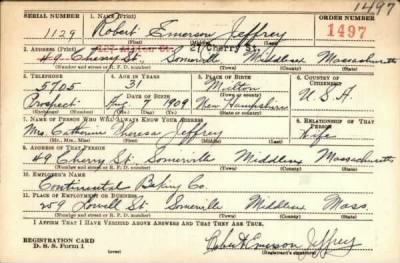 1497
SERIAL NUMBER 1. NAME (Print) ORDER NUMBER
1129 Robert Emerson Jeffrey 1497
(First) (Middle) (Last)
2. ADDRESS (Print) 27 Cherry St.
49 Cherry St. Somerville Middlesex Massachusetts
(Number and street or R. F. D. number) (Town) (County) (State)
3. TELEPHONE 4. AGE IN YEARS 5. PLACE OF BIRTH 6. COUNTRY OF CITIZENSHIP
5705 31 Milton
DATE OF BIRTH (Town or county) U.S.A.
Prospect Aug 7 1909 New Hampshire
(Exchange) (Number) (Mo.) (Day) (Yr.) (State or country)
7. NAME OF PERSON WHO WILL ALWAYS KNOW YOUR ADDRESS 8. RELATIONSHIP OF THAT PERSON
Mrs. Catherine Theresa Jeffrey Wife
(Mr., Mrs., Miss) (First) (Middle) (Last)
9. ADDRESS OF THAT PERSON
49 Cherry St. Somerville Middlesex Massachusetts
(Number and street or R. F. D. number) (Town) (County) (State)
10. EMPLOYER'S NAME
Continental Baking Co.
11. PLACE OF EMPLOYMENT OR BUSINESS
259 Lowell St. Somerville Middlesex Mass.
(Number and street or R. F. D. number) (Town) (County) (State)
I AFFIRM THAT I HAVE VERIFIED ABOVE ANSWERS AND THAT THEY ARE TRUE.
REGISTRATION CARD Robert Emerson Jeffrey
D. S. S. Form 1 (over) (Registrant's signature)